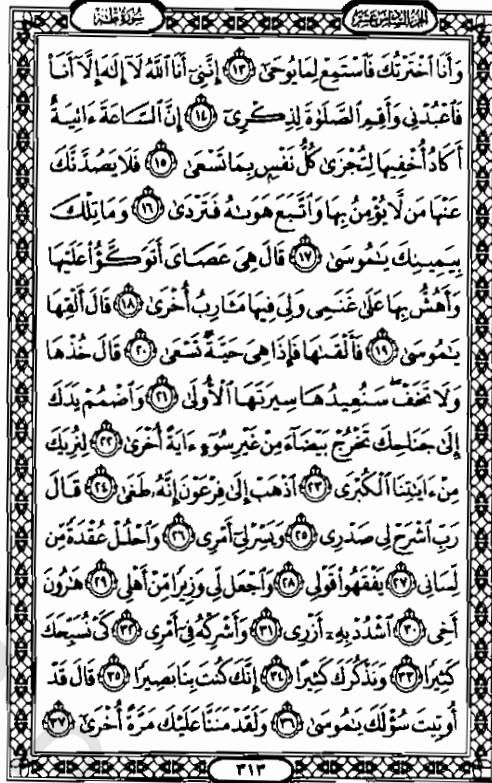 سُورَةُ طٰهٰ
الجزء السادس عشر
وَأَنَا ٱخْتَرْتُكَ فَٱسْتَمِعْ لِمَا يُوحَىٰٓ ١٣ إِنَّنِىٓ أَنَا ٱللَّهُ لَآ إِلَٰهَ إِلَّآ أَنَا۠
فَٱعْبُدْنِى وَأَقِمِ ٱلصَّلَوٰةَ لِذِكْرِىٓ ١٤ إِنَّ ٱلسَّاعَةَ ءَاتِيَةٌ
أَكَادُ أُخْفِيهَا لِتُجْزَىٰ كُلُّ نَفْسٍۭ بِمَا تَسْعَىٰ ١٥ فَلَا يَصُدَّنَّكَ
عَنْهَا مَن لَّا يُؤْمِنُ بِهَا وَٱتَّبَعَ هَوَىٰهُ فَتَرْدَىٰ ١٦ وَمَا تِلْكَ
بِيَمِينِكَ يَٰمُوسَىٰ ١٧ قَالَ هِىَ عَصَاىَ أَتَوَكَّؤُا۟ عَلَيْهَا
وَأَهُشُّ بِهَا عَلَىٰ غَنَمِى وَلِىَ فِيهَا مَـَٔارِبُ أُخْرَىٰ ١٨ قَالَ أَلْقِهَا
يَٰمُوسَىٰ ١٩ فَأَلْقَىٰهَا فَإِذَا هِىَ حَيَّةٌ تَسْعَىٰ ٢٠ قَالَ خُذْهَا
وَلَا تَخَفْ ۖ سَنُعِيدُهَا سِيرَتَهَا ٱلْأُولَىٰ ٢١ وَٱضْمُمْ يَدَكَ
إِلَىٰ جَنَاحِكَ تَخْرُجْ بَيْضَآءَ مِنْ غَيْرِ سُوٓءٍ ءَايَةً أُخْرَىٰ ٢٢ لِنُرِيَكَ
مِنْ ءَايَٰتِنَا ٱلْكُبْرَى ٢٣ ٱذْهَبْ إِلَىٰ فِرْعَوْنَ إِنَّهُۥ طَغَىٰ ٢٤ قَالَ
رَبِّ ٱشْرَحْ لِى صَدْرِى ٢٥ وَيَسِّرْ لِىٓ أَمْرِى ٢٦ وَٱحْلُلْ عُقْدَةً مِّن
لِّسَانِى ٢٧ يَفْقَهُوا۟ قَوْلِى ٢٨ وَٱجْعَل لِّى وَزِيرًا مِّنْ أَهْلِى ٢٩ هَٰرُونَ
أَخِى ٣٠ ٱشْدُدْ بِهِۦٓ أَزْرِى ٣١ وَأَشْرِكْهُ فِىٓ أَمْرِى ٣٢ كَىْ نُسَبِّحَكَ
كَثِيرًا ٣٣ وَنَذْكُرَكَ كَثِيرًا ٣٤ إِنَّكَ كُنتَ بِنَا بَصِيرًا ٣٥ قَالَ قَدْ
أُوتِيتَ سُؤْلَكَ يَٰمُوسَىٰ ٣٦ وَلَقَدْ مَنَنَّا عَلَيْكَ مَرَّةً أُخْرَىٰٓ ٣٧
٣١٣